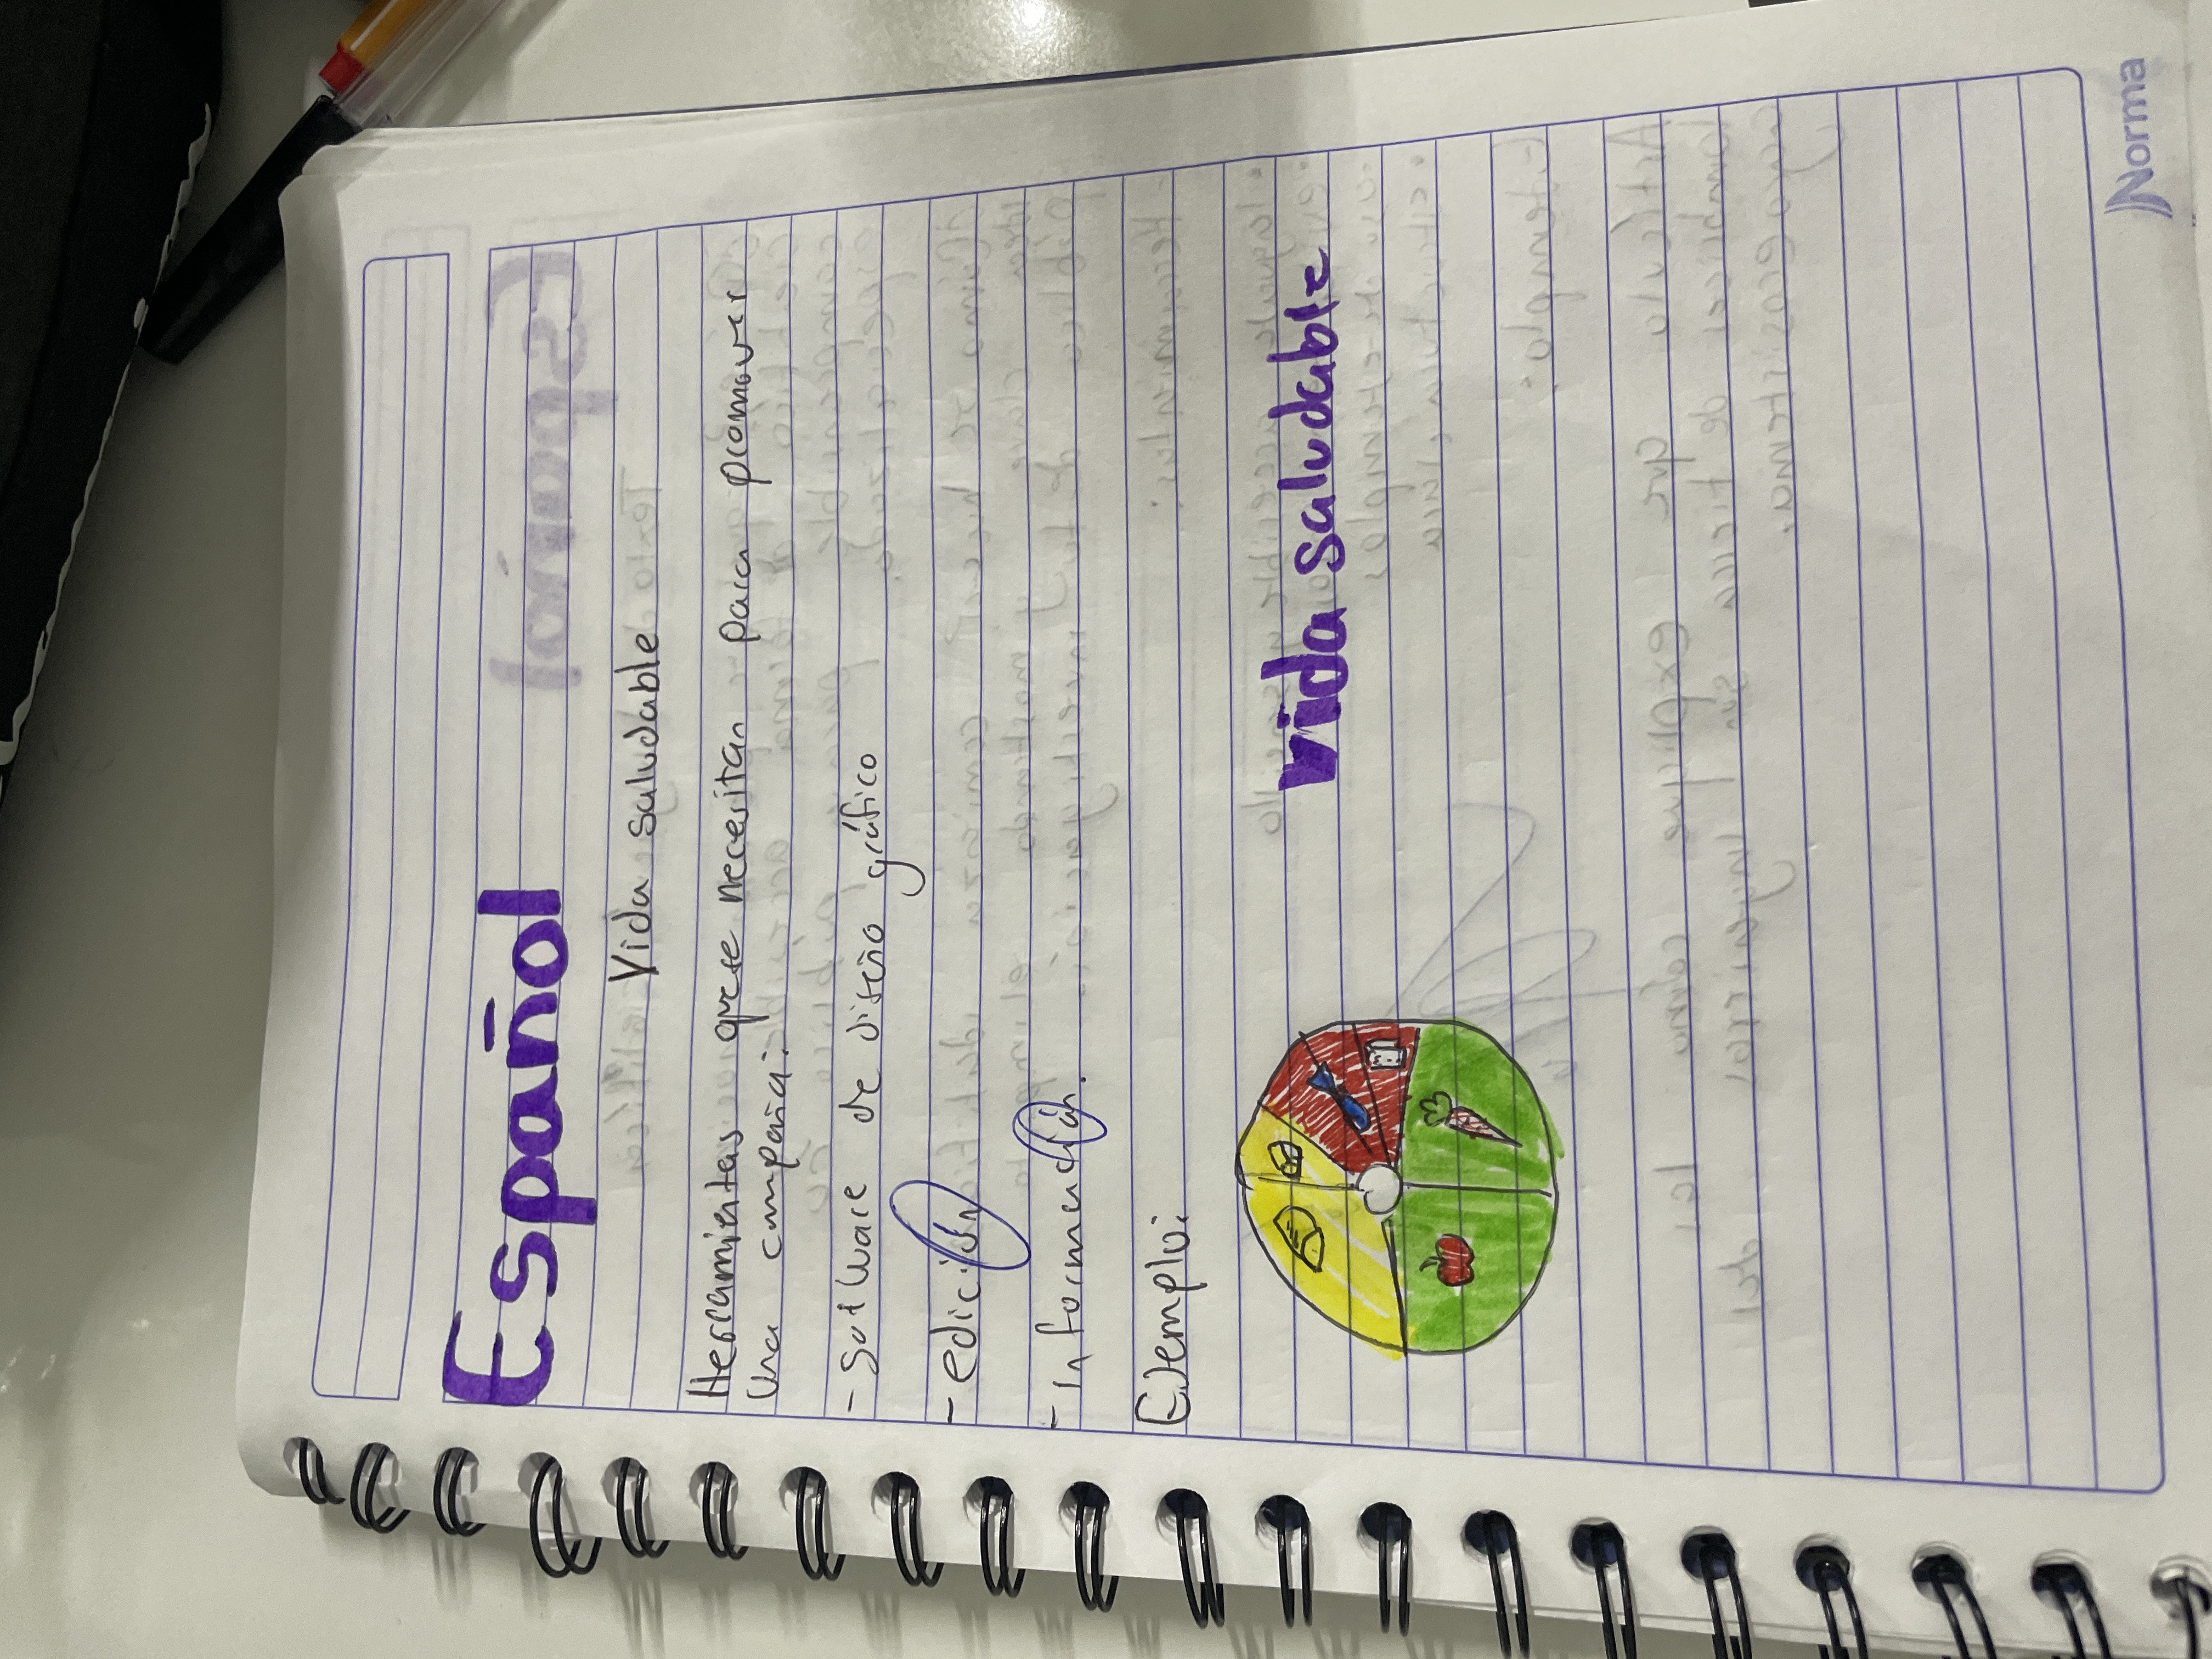 Español
Vida saludable
Herramientas que se necesitan para promover
una campaña:
- software de diseño gráfico
- edición
- Información.
Ejemplo:
vida saludable
Norma